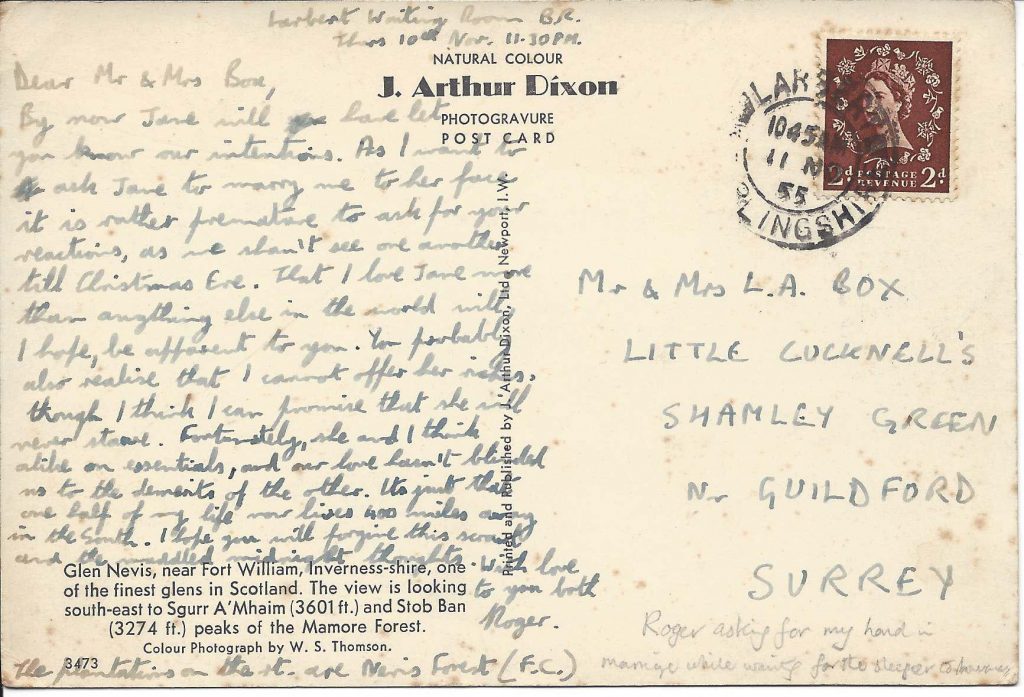 Larbert Waiting Room B.R.
Thurs 10th Nov. 11.30PM.
NATURAL COLOUR
J. Arthur Dixon
PHOTOGRAVURE
POST CARD
Dear Mr & Mrs Box,
By now Jane will have let
you know our intentions. As I want to
ask Jane to marry me to her face
it is rather premature to ask for your
reactions, as we shan't see one another
till Christmas Eve. That I love Jane more
than anything else in the world will,
I hope, be apparent to you. You probably
also realise that I cannot offer her riches,
though I think I can promise that she will
never starve. Fortunately, she and I think
alike on essentials, and our love hasn't blinded
us to the demerits of the other. Its just that
one half of my life now lives 400 miles away
in the South. I hope you will forgive this scrawl
and the muddled midnight thoughts. With love
to you both
Roger.
Glen Nevis, near Fort William, Inverness-shire, one
of the finest glens in Scotland. The view is looking
south-east to Sgurr A'Mhaim (3601 ft.) and Stob Ban
(3274 ft.) peaks of the Mamore Forest.
Colour Photograph by W. S. Thomson.
3473
The plantations on the rt. are Nevis Forest (F.C.)
Printed and Published by J. Arthur Dixon, Ltd., Newport, I.W.
LARBERT
1045AM
11 NO
55
STIRLINGSHIRE
2d POSTAGE REVENUE 2d
Mr & Mrs L.A. BOX
LITTLE CUCKNELL'S
SHAMLEY GREEN
Nr GUILDFORD
SURREY
Roger asking for my hand in
marriage while waiting for the sleeper